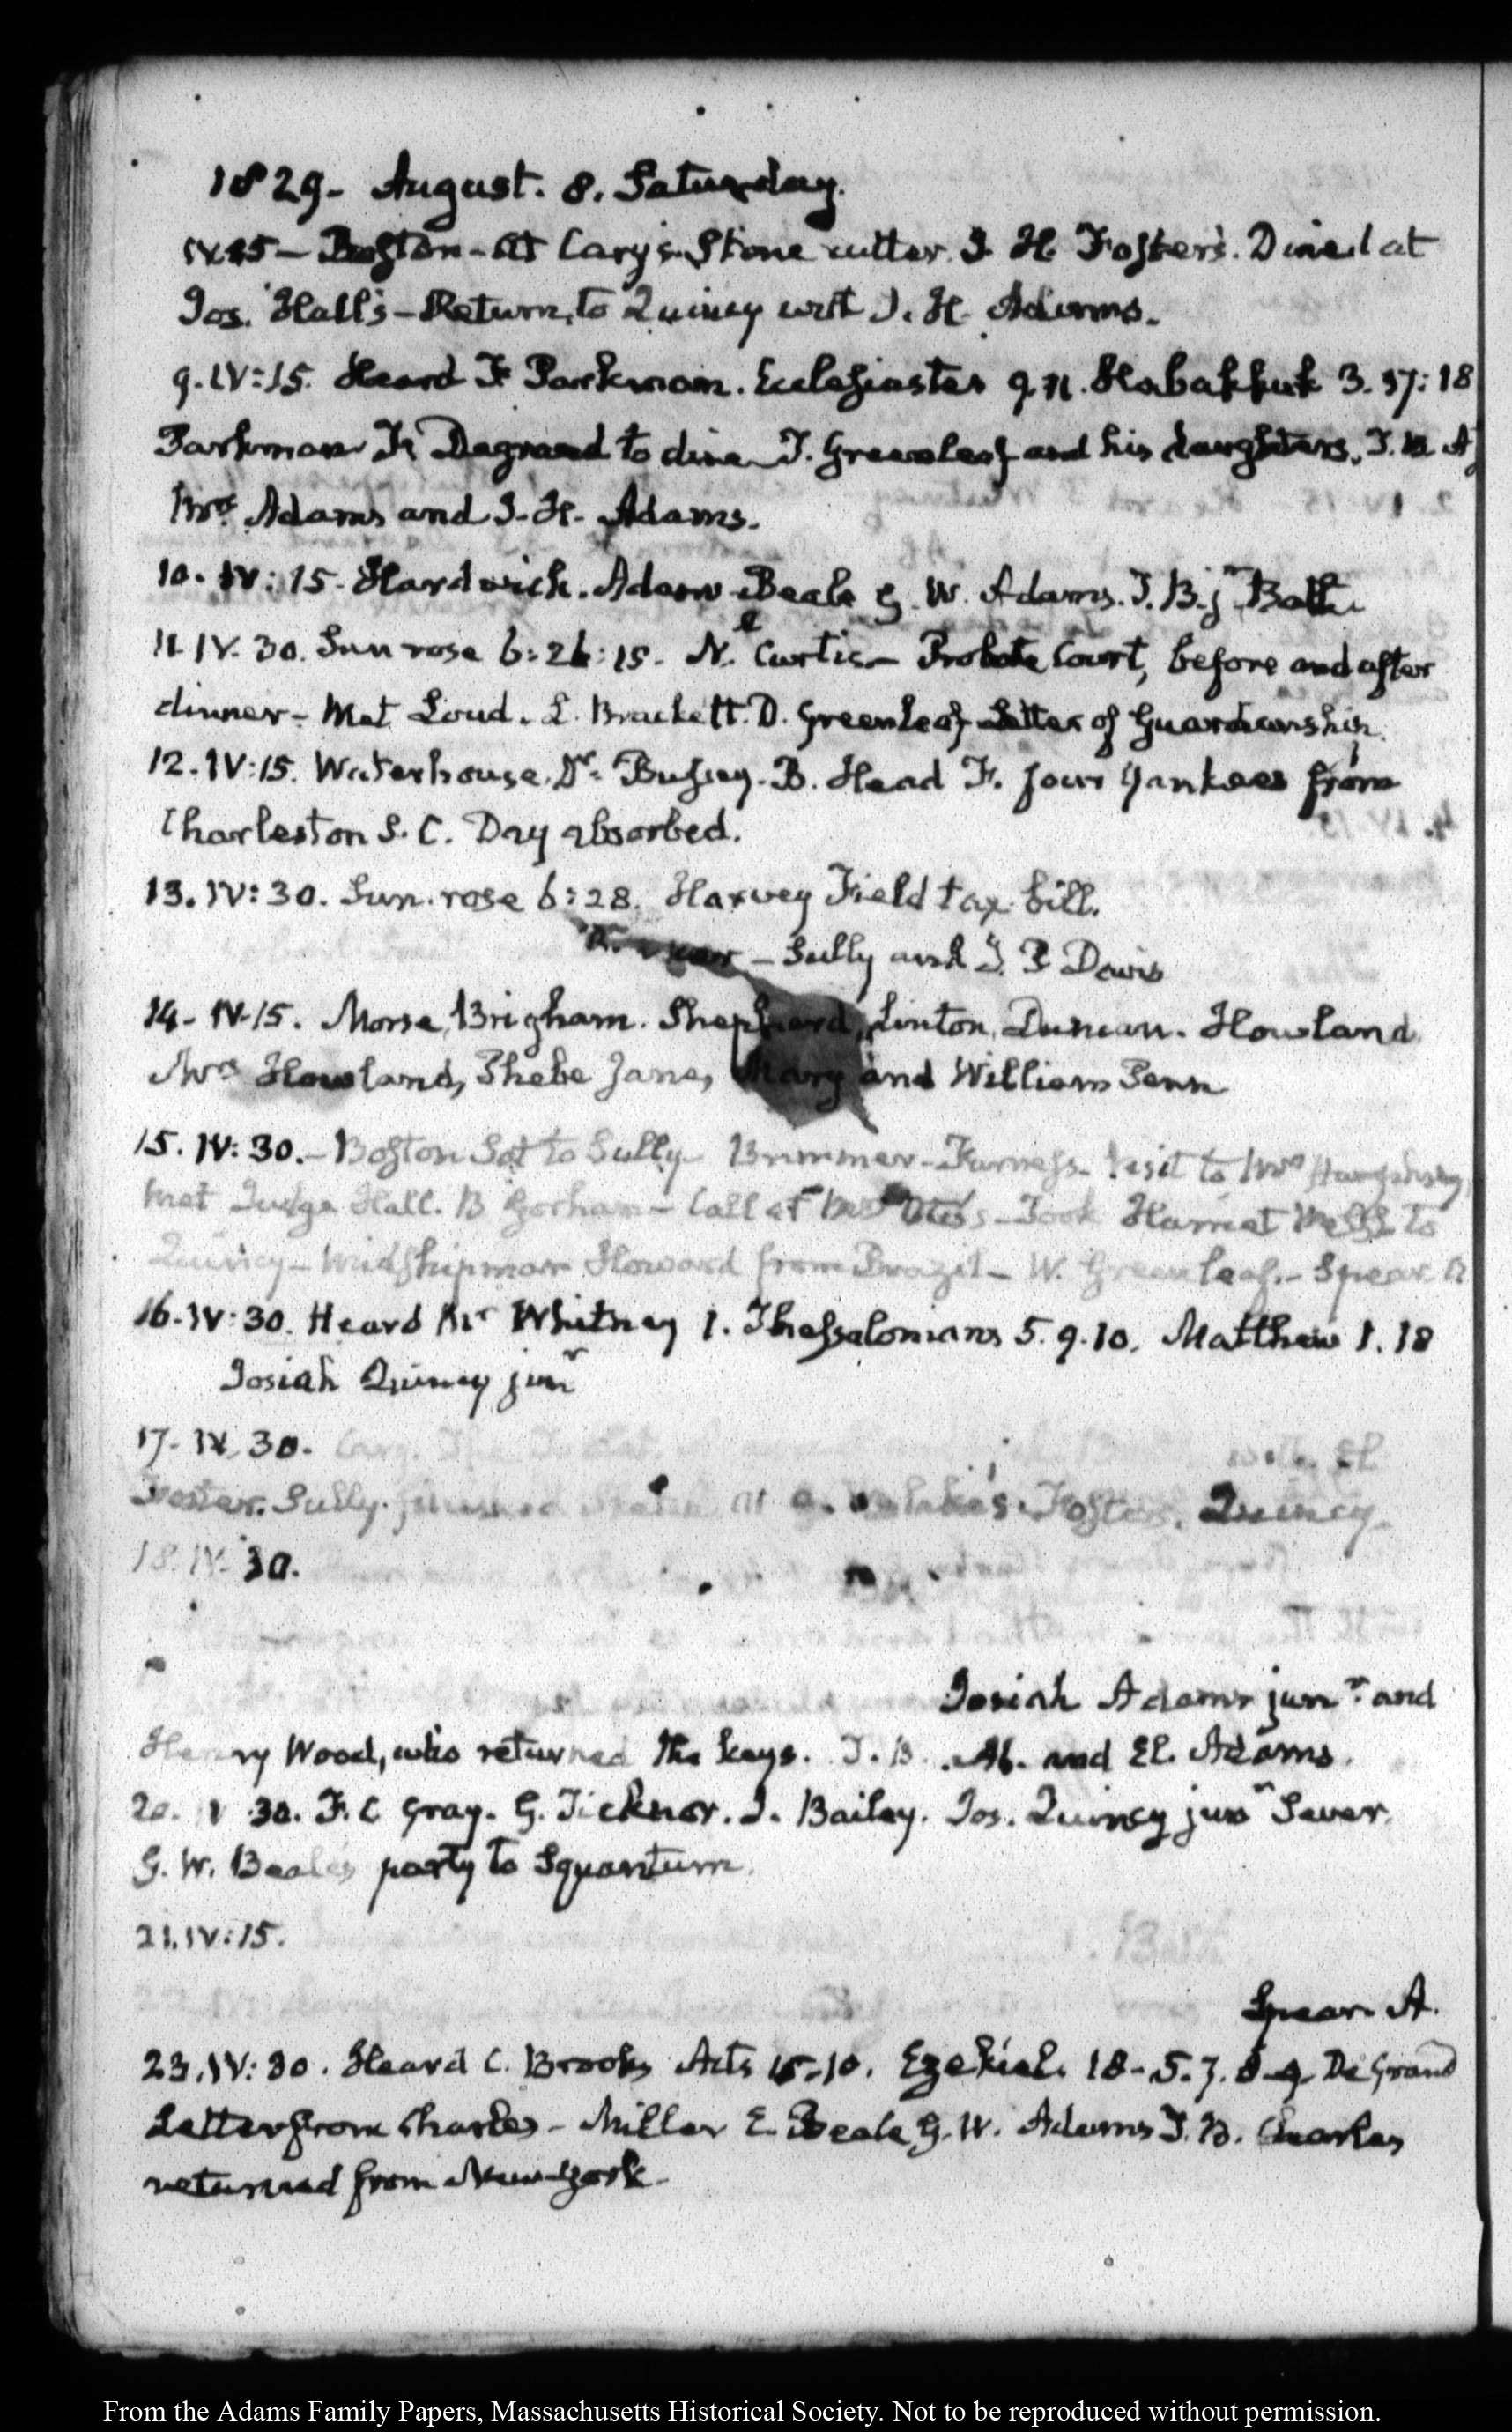 1829- August. 8. Saturday.
IV.45 — Boston - At Cary's. Stone cutter. I. H. Foster's. Dined at
Jos. Hall's – Return to Quincy with I. H. Adams.
9. IV:15. Heard F Parkman. Ecclesiastes 9.11. Habakkuk 3. 17:18
Parkman F. Degrand to dine. T. Greenleaf and his daughters. T. B. A
Mrs Adams and I. H. Adams.
10. IV:15. Hardwick. Adam Beale G. W. Adams. T. B. jr
11. IV. 30. Sun rose 6:26:15. N. Curtis – Probate Court, before and after
dinner – Met Loud. L. Brackett. D. Greenleaf Letter of Guardianship.
12. IV:15. Waterhouse. Dr. Bussey. B. Head F. four Yankees from
Charleston S. C. Day absorbed.
13. IV:30. Sun. rose 6:28. Harvey Field tax bill.
– Sully and I. P Davis
14- IV-15. Morse, Brigham. Shepherd, Linton, Duncan. Howland
Mrs Howland, Phebe Jane, Mary and William Penn
15. IV:30. – Boston Sat to Sully Brimmer – Furness – Visit to Mrs
Met Judge Hall. B Gorham – Call at Mrs Otis's – Took Harriet Welsh to
Quincy – Midshipman Howard from Brazil – W. Greenleaf. – Spear A
16. IV:30. Heard Mr Whitney 1. Thessalonians 5. 9.10. Matthew 1. 18
Josiah Quincy junr
17- IV 30. Cary.
Foster. Sully. finished at Foster. Quincy
18. IV. 30.
Josiah Adams junr. and
Henry Wood, who returned the keys. T. B. and El. Adams.
20. V 30. F. C Gray. G. Ticknor. I. Bailey. Jos. Quincy junr Sever.
G. W. Beale's party to Squantum.
21. IV:15.
Spear A.
23. IV:30. Heard C. Brooks Acts 15-10. Ezekiel. 18-5. 7. 8-9 De Grand
Letter from Charles – Miller E Beale G. W. Adams T. B. Charles
returned from New-York –
From the Adams Family Papers, Massachusetts Historical Society. Not to be reproduced without permission.